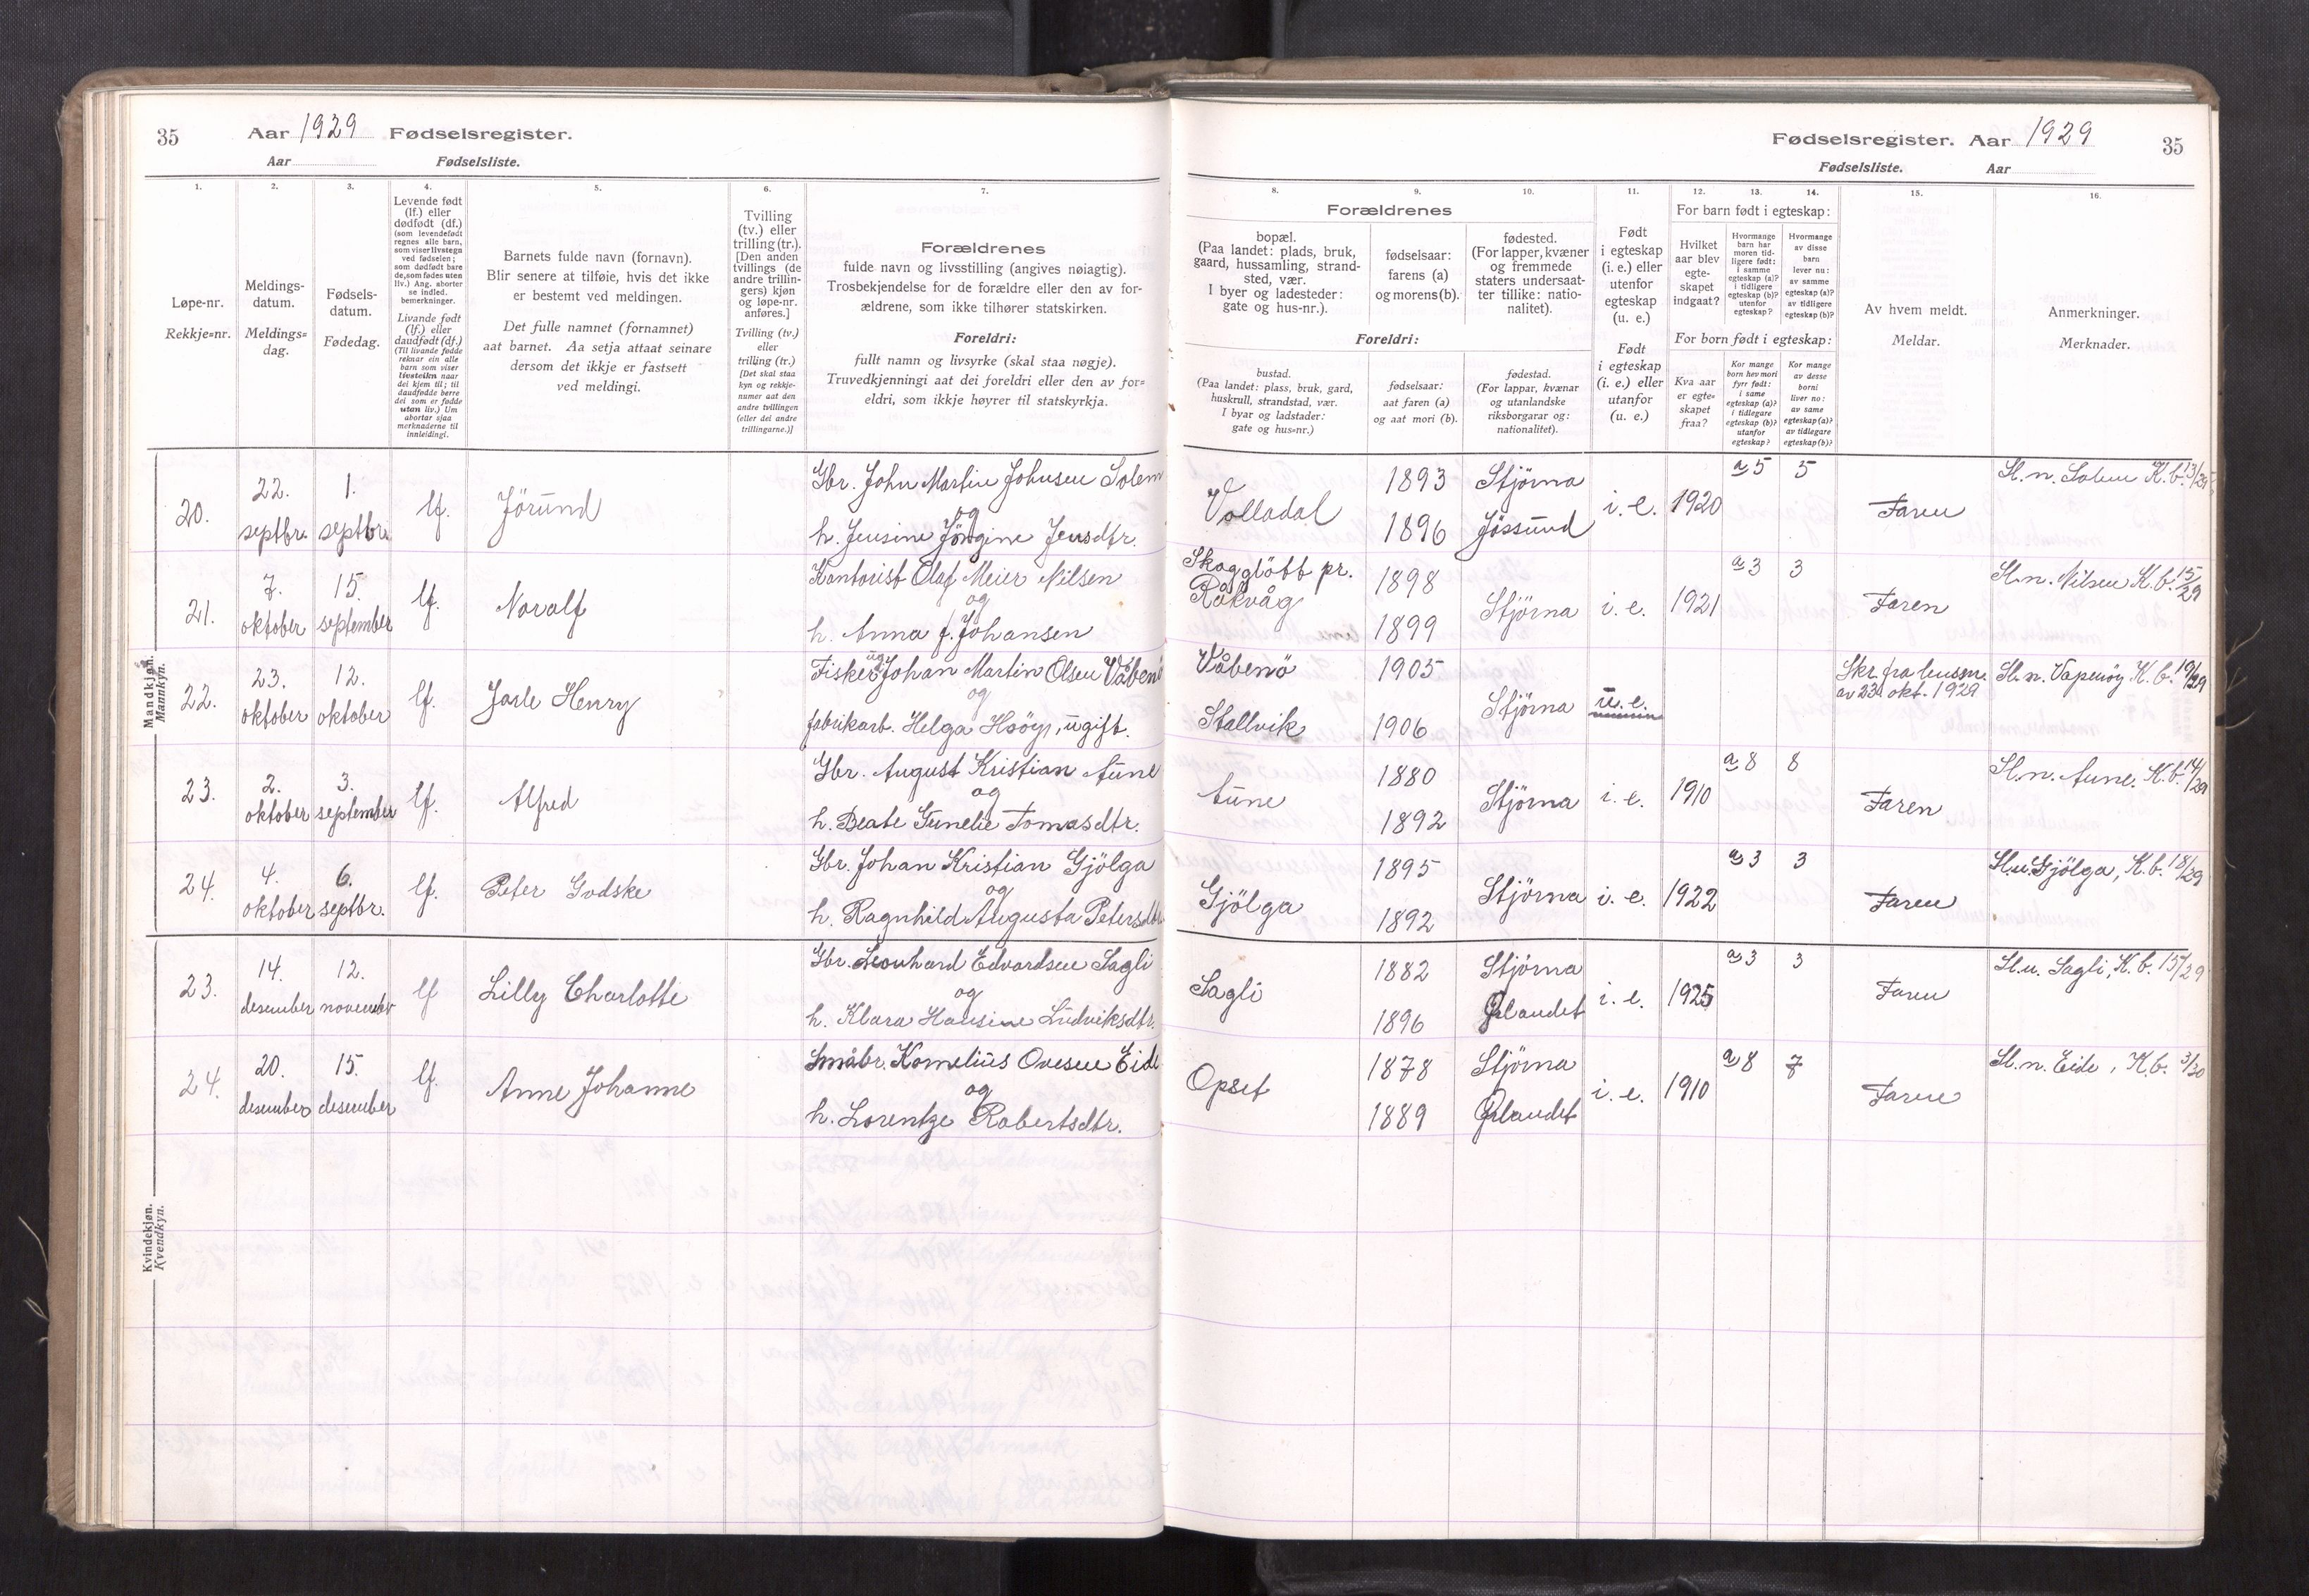 35 Aar 1929 Fødselsregister.
Aar Fødselsliste.
1. 2. 3. 4. 5. 6. 7.
Løpe-nr.
Rekkje=nr.
Meldings-
datum.
Meldings=
dag.
Fødsels-
datum.
Fødedag.
Levende født
(lf.) eller
dødfødt (df.)
(som levendefødt
regnes alle barn,
som viser livstegn
ved fødselen;
som dødfødt bare
de, som fødes uten
liv.) Ang. aborter
se indled.
bemerkninger.
Livande født
(lf.) eller
daudfødt (df.)
(Til livande fødde
reknar ein alle
barn som viser
livsteikn naar
dei kjem til; til
daudfødde berre
dei som er fødde
utan liv.) Um
abortar sjaa
merknaderne til
innleidingi.
Barnets fulde navn (fornavn).
Blir senere at tilføie, hvis det ikke
er bestemt ved meldingen.
Det fulle namnet (fornamnet)
aat barnet. Aa setja attaat seinare
dersom det ikkje er fastsett
ved meldingi.
Tvilling
(tv.) eller
trilling (tr.).
[Den anden
tvillings (de
andre trillin-
gers) kjøn
og løpe-nr.
anføres.]
Tvilling (tv.)
eller
trilling (tr.)
[Det skal staa
kyn og rekkje-
numer aat den
andre tvillingen
(eller dei andre
trillingarne.)]
Forældrenes
fulde navn og livsstilling (angives nøiagtig).
Trosbekjendelse for de forældre eller den av for-
ældrene, som ikke tilhører statskirken.
Foreldri:
fullt namn og livsyrke (skal staa nøgje).
Truvedkjenningi aat dei foreldri eller den av for=
eldri, som ikkje høyrer til statskyrkja.
Mandkjøn.
Mannkyn.
20. 22. septbr. 1. septbr. lf. Jörund
Gbr. John Martin Johnsen Solem
og
h. Jensine Jörgine Jensdtr.
21. 7. oktober 15. september lf. Noralf
Kontorist Olaf Meier Nilsen
og
h. Anna f. Johansen
22. 23. oktober 12. oktober lf. Jarle Henry
Fisker ug. Johan Martin Olsen Våbenö
og
fabrikarb. Helga Hsöyr, ugift.
23. 2. oktober 3. september lf. Alfred
Gbr. August Kristian Aune
og
h. Beate Gunelie Tomasdtr.
24. 4. oktober 6. septbr. lf. Peter Godske
Gbr. Johan Kristian Gjölga
og
h. Ragnhild Augusta Petersdtr.
Kvindekjøn.
Kvendkyn.
23. 14. desember 12. november lf Lilly Charlotte
Gbr. Leonhard Edvardsen Sagli
og
h. Klara Hansine Ludviksdtr.
24. 20. desember 15. desember lf. Anne Johanne
Småbr. Kornelius Ovesen Eide
og
h. Lorentze Robertsdtr.
Fødselsregister. Aar 1929 35
Fødselsliste. Aar
8. 9. 10. 11. 12. 13. 14. 15. 16.
Forældrenes
bopæl.
(Paa landet: plads, bruk,
gaard, hussamling, strand-
sted, vær.
I byer og ladesteder:
gate og hus-nr.).
fødselsaar:
farens (a)
og morens (b).
fødested.
(For lapper, kvæner
og fremmede
staters undersaat-
ter tillike: natio-
nalitet).
Foreldri:
bustad.
(Paa landet: plass, bruk, gard,
huskrull, strandstad, vær.
I byar og ladstader:
gate og hus=nr.)
fødselsaar:
aat faren (a)
og aat mori (b).
fødestad.
(For lappar, kvænar
og utanlandske
riksborgarar og:
nationalitet).
Født
i egteskap
(i. e.) eller
utenfor
egteskap
(u. e.)
Født
i egteskap
(i. e.) eller
utanfor
(u. e.)
For barn født i egteskap:
Hvilket
aar blev
egte-
skapet
indgaat?
Hvormange
barn har
moren tid-
ligere født:
i samme
egteskap (a)?
i tidligere
egteskap (b)?
utenfor
egteskap?
Hvormange
av disse
barn
lever nu:
av samme
egteskap (a)?
av tidligere
egteskap (b)?
For born født i egteskap:
Kva aar
er egte=
skapet
fraa?
Kor mange
born hev mori
fyrr født:
i same
egteskap (a)?
i tidlegare
egteskap (b)?
utanfor
egteskap?
Kor mange
av desse
borni
liver no:
av same
egteskap (a)?
av tidlegare
egteskap (b)?
Av hvem meldt.
Meldar.
Anmerkninger.
Merknader.
Volladal 1893 Stjörna
1896 Jössund
i. e. 1920 a 5 5 Faren Sl. n. Solem K. b. 13/29
Skogglött pr.
Råkvåg 1898
1899 Stjörna i. e. 1921 a 3 3 Faren Sl. n. Nilsen K. b. 15/29
Våbenö 1905
Stallvik 1906 Stjörna u. e.
Skr. fra husm.
av 23. okt. 1929
Sl. n. Vapenöy K. b. 19/29
Aune 1880
1892 Stjörna i. e. 1910 a 8 8 Faren Sl. n. Aune. K. b. 14/29
Gjölga 1895
1892 Stjörna i. e. 1922 a 3 3 Faren Sl. n. Gjölga, K. b. 18/29
Sagli 1882 Stjörna
1896 Ørlandet
i. e. 1925 a 3 3 Faren Sl. n. Sagli, K. b. 157/29
Opset 1878 Stjörna
1889 Ørlandet
i. e. 1910 a 8 7 Faren Sl. n. Eide, K. b. 3/30